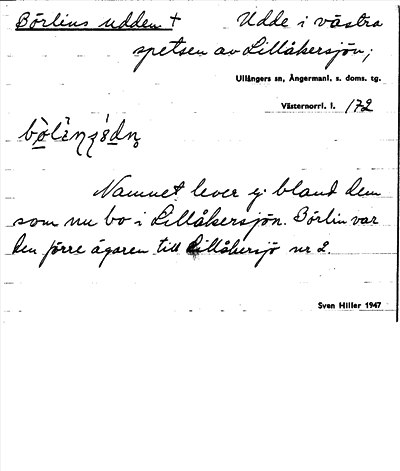 Börlins udden † Udde i västra
spetsen av Lillåkersjön;
Ullångers sn, Ångermanl. s. doms. tg.
Västernorrl. l. 172
Namnet lever ej bland dem
som nu bo i Lillåkersjön. Börlin var
den förre ägaren till Lillåkersjö nr 2.
Sven Hiller 1947